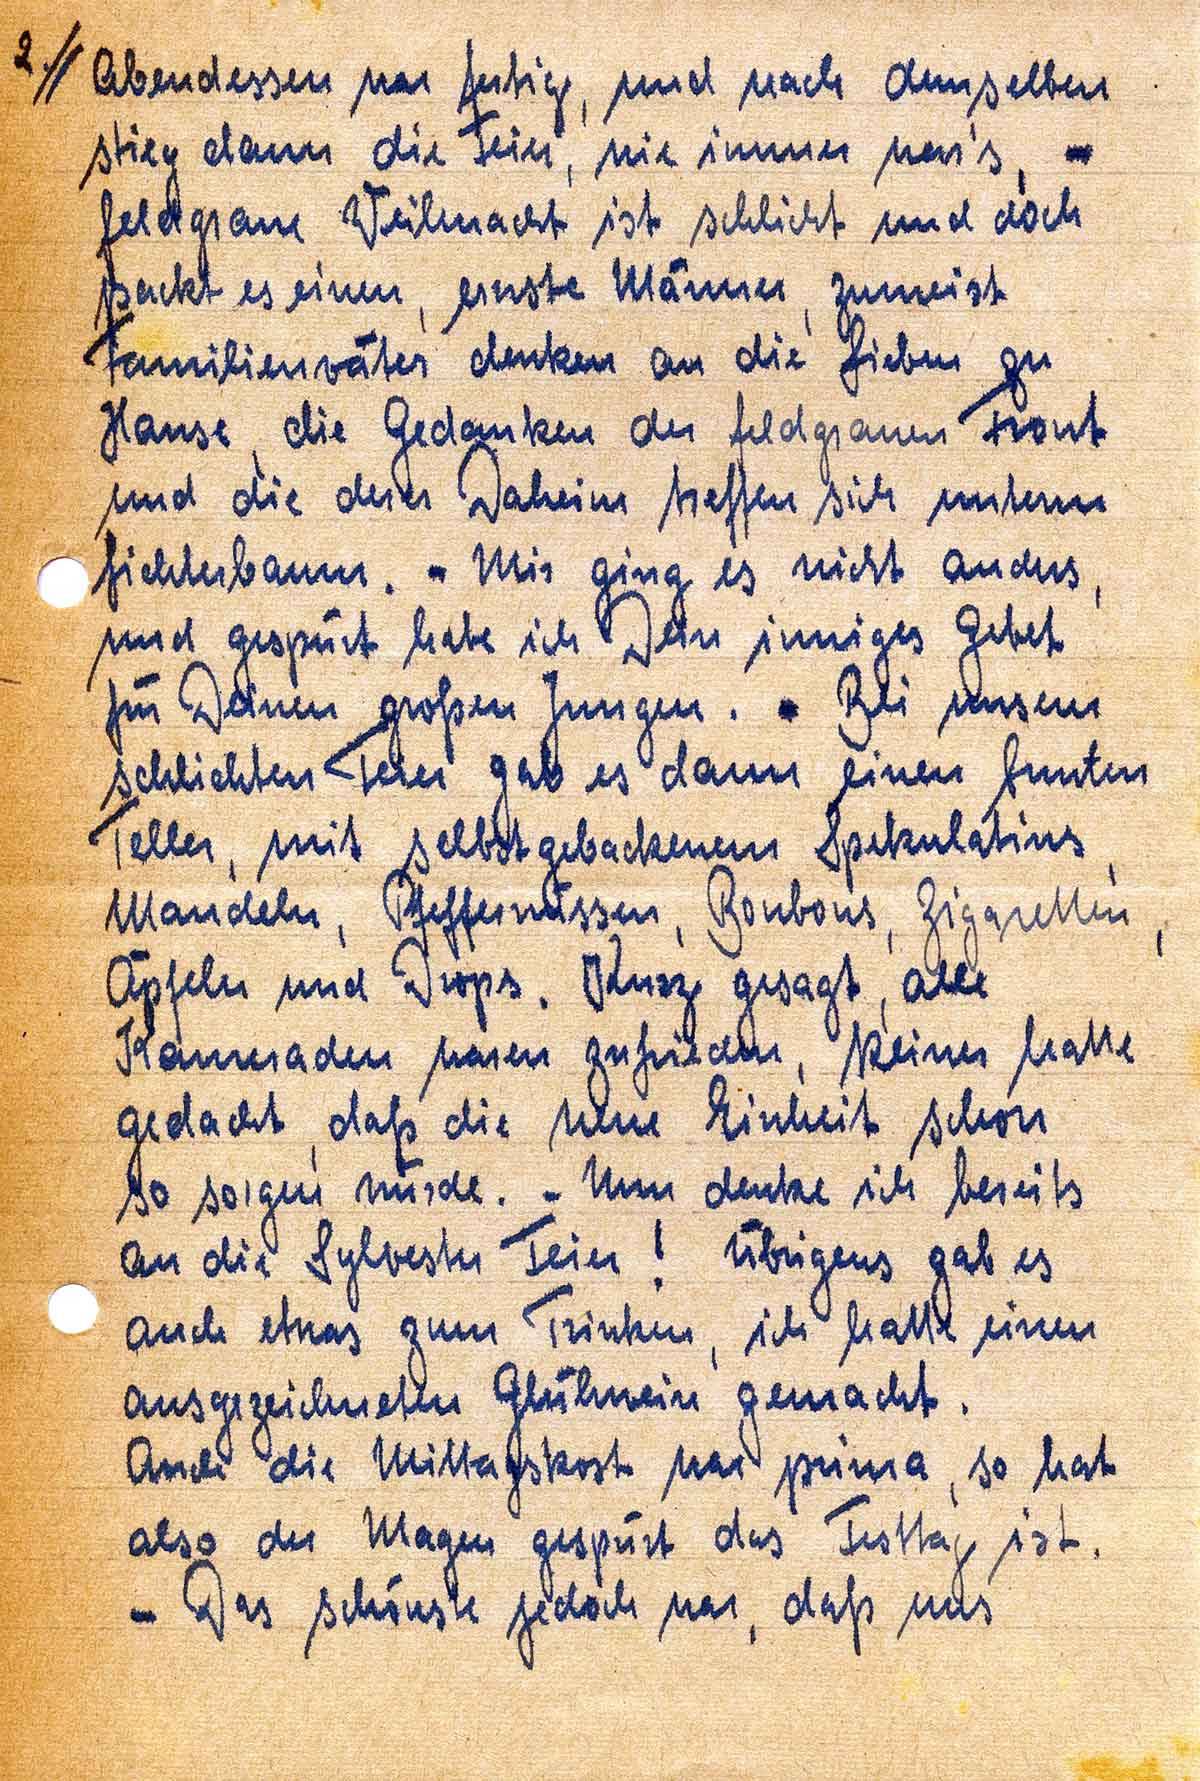 2.//
Abendessen war fertig, und nach demselben
stieg dann die Feier, wie immer war's, -
feldgraue Weihnacht ist schlicht und doch
packt es einen, ernste Männer, zumeist
Familienväter denken an die Lieben zu
Hause, die Gedanken der feldgrauen Front
und die derer Daheim treffen sich unterm
Lichterbaum. - Mir ging es nicht anders,
und gespürt habe ich Dein inniges Gebet
für Deinen großen Jungen. - Bei unserer
schlichten Feier gab es dann einen bunten
Teller, mit selbstgebackenem Spekulatius,
Mandeln, Pfeffernüssen, Bonbons, Zigaretten,
Äpfeln und Drops. Kurz gesagt, alle
Kameraden waren zufrieden, keiner hatte
gedacht, daß die neue Einheit schon
so sorgen würde. - Nun denke ich bereits
an die Sylvester Feier! Übrigens gab es
auch etwas zum Trinken, ich hatte einen
ausgezeichneten Glühwein gemacht.
Auch die Mittagskost war prima, so hat
also der Magen gespürt das Festtag ist.
- Das schönste jedoch war, daß uns